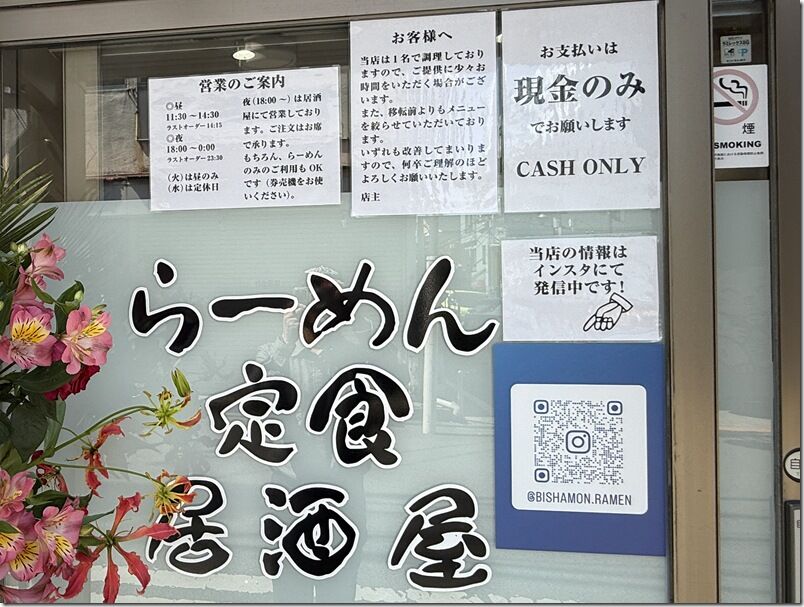 営業のご案内
◎昼
11:30～14:30
ラストオーダー14:15
◎夜
18:00～0:00
ラストオーダー23:30
(火)は昼のみ
(水)は定休日
夜(18:00～)は居酒
屋にて営業しており
ます。ご注文はお席
で承ります。
もちろん、らーめん
のみのご利用もOK
です(券売機をお使
いください)。
お客様へ
当店は1名で調理しており
ますので、ご提供に少々お
時間をいただく場合がござ
います。
また、移転前よりもメニュー
を絞らせていただいており
ます。
いずれも改善してまいりま
すので、何卒ご理解のほど
よろしくお願いいたします。
店主
お支払いは
現金のみ
でお願いします
CASH ONLY
煙
SMOKING
当店の情報は
インスタにて
発信中です!
らーめん
定食
居酒屋
@BISHAMON.RAMEN